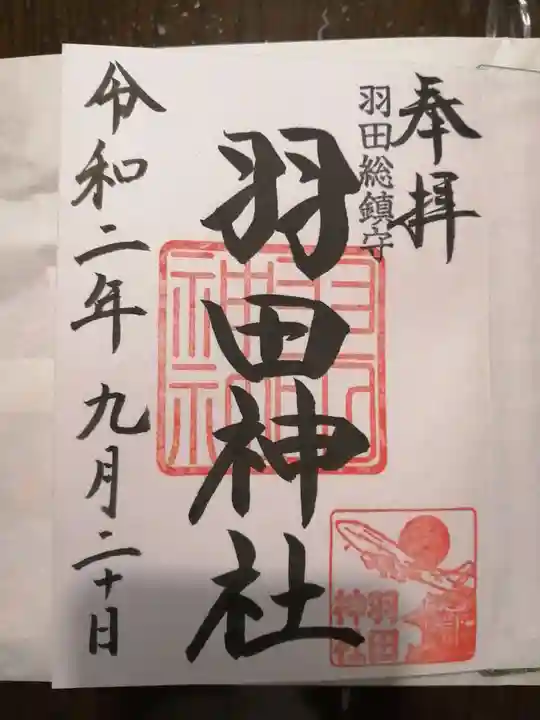 奉拝
羽田総鎮守
羽田神社
羽田
神社
令和二年九月二十日